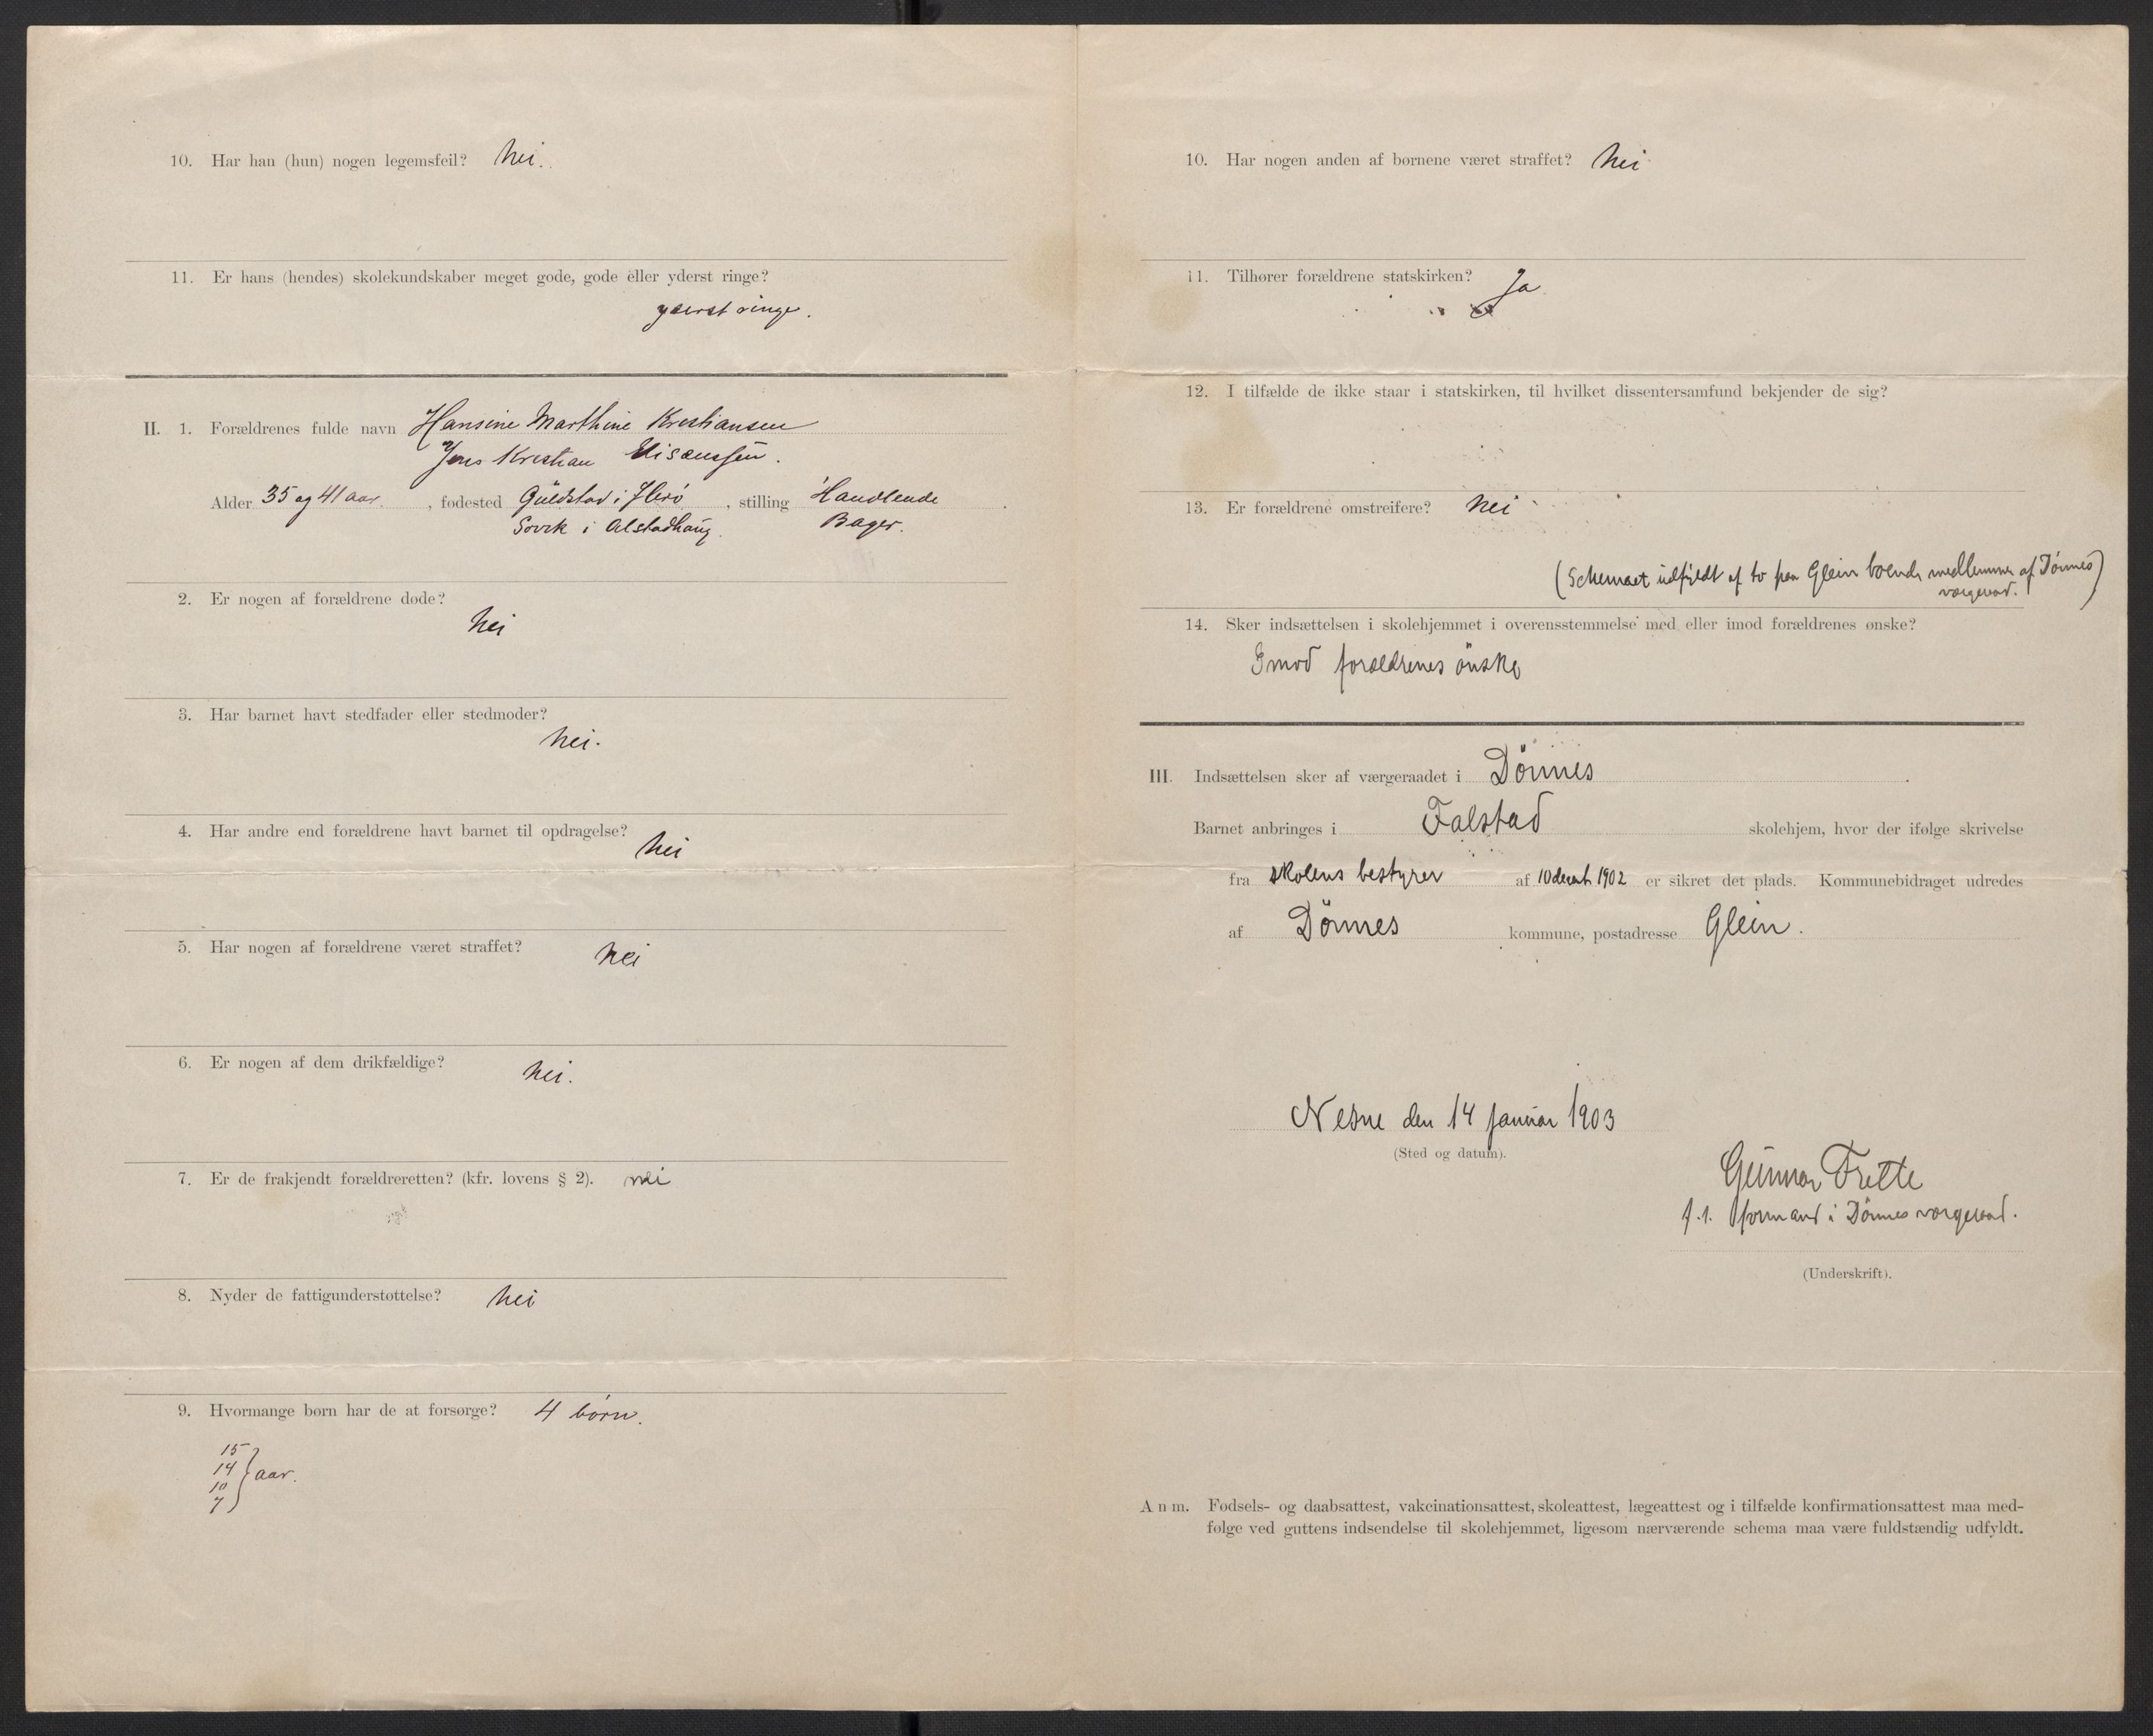 10. Har han (hun) nogen legemsfeil? Nei.
11. Er hans (hendes) skolekundskaber meget gode, gode eller yderst ringe?
yderst ringe.
II. 1. Forældrenes fulde navn Hansine Marthine Kristiansen
Jens Kristian
Alder 35 og 41 aar, fødested Guldstad i Herö, stilling Handlende
Sövik i Alstadhaug. Bager.
2. Er nogen af forældrene døde?
Nei
3. Har barnet havt stedfader eller stedmoder?
Nei.
4. Har andre end forældrene havt barnet til opdragelse?
Nei
5. Har nogen af forældrene været straffet? Nei
6. Er nogen af dem drikfældige? Nei.
7. Er de frakjendt forældreretten? (kfr. lovens § 2). nei
8. Nyder de fattigunderstøttelse? Nei
9. Hvormange børn har de at forsørge? 4 börn.
15
14 } aar.
10
7
10. Har nogen anden af børnene været straffet? Nei
11. Tilhører forældrene statskirken? Ja
12. I tilfælde de ikke staar i statskirken, til hvilket dissentersamfund bekjender de sig?
13. Er forældrene omstreifere? Nei
(Schemaet udfyldt af to paa Glein boende medlemmer af Dönnes
værgeraad.)
14. Sker indsættelsen i skolehjemmet i overensstemmelse med eller imod forældrenes ønske?
Imod forældrenes önske
III. Indsættelsen sker af værgeraadet i Dönnes.
Barnet anbringes i Falstad skolehjem, hvor der ifølge skrivelse
fra skolens bestyrer af 10 decbr 1902 er sikret det plads. Kommunebidraget udredes
af Dönnes kommune, postadresse Glein.
Nesne den 14 januar 1903
(Sted og datum).
Gunnar Frette
f.t. formand i Dönnes værgeraad.
(Underskrift).
Anm. Fødsels- og daabsattest, vakcinationsattest, skoleattest, lægeattest og i tilfælde konfirmationsattest maa med-
følge ved guttens indsendelse til skolehjemmet, ligesom nærværende schema maa være fuldstændig udfyldt.